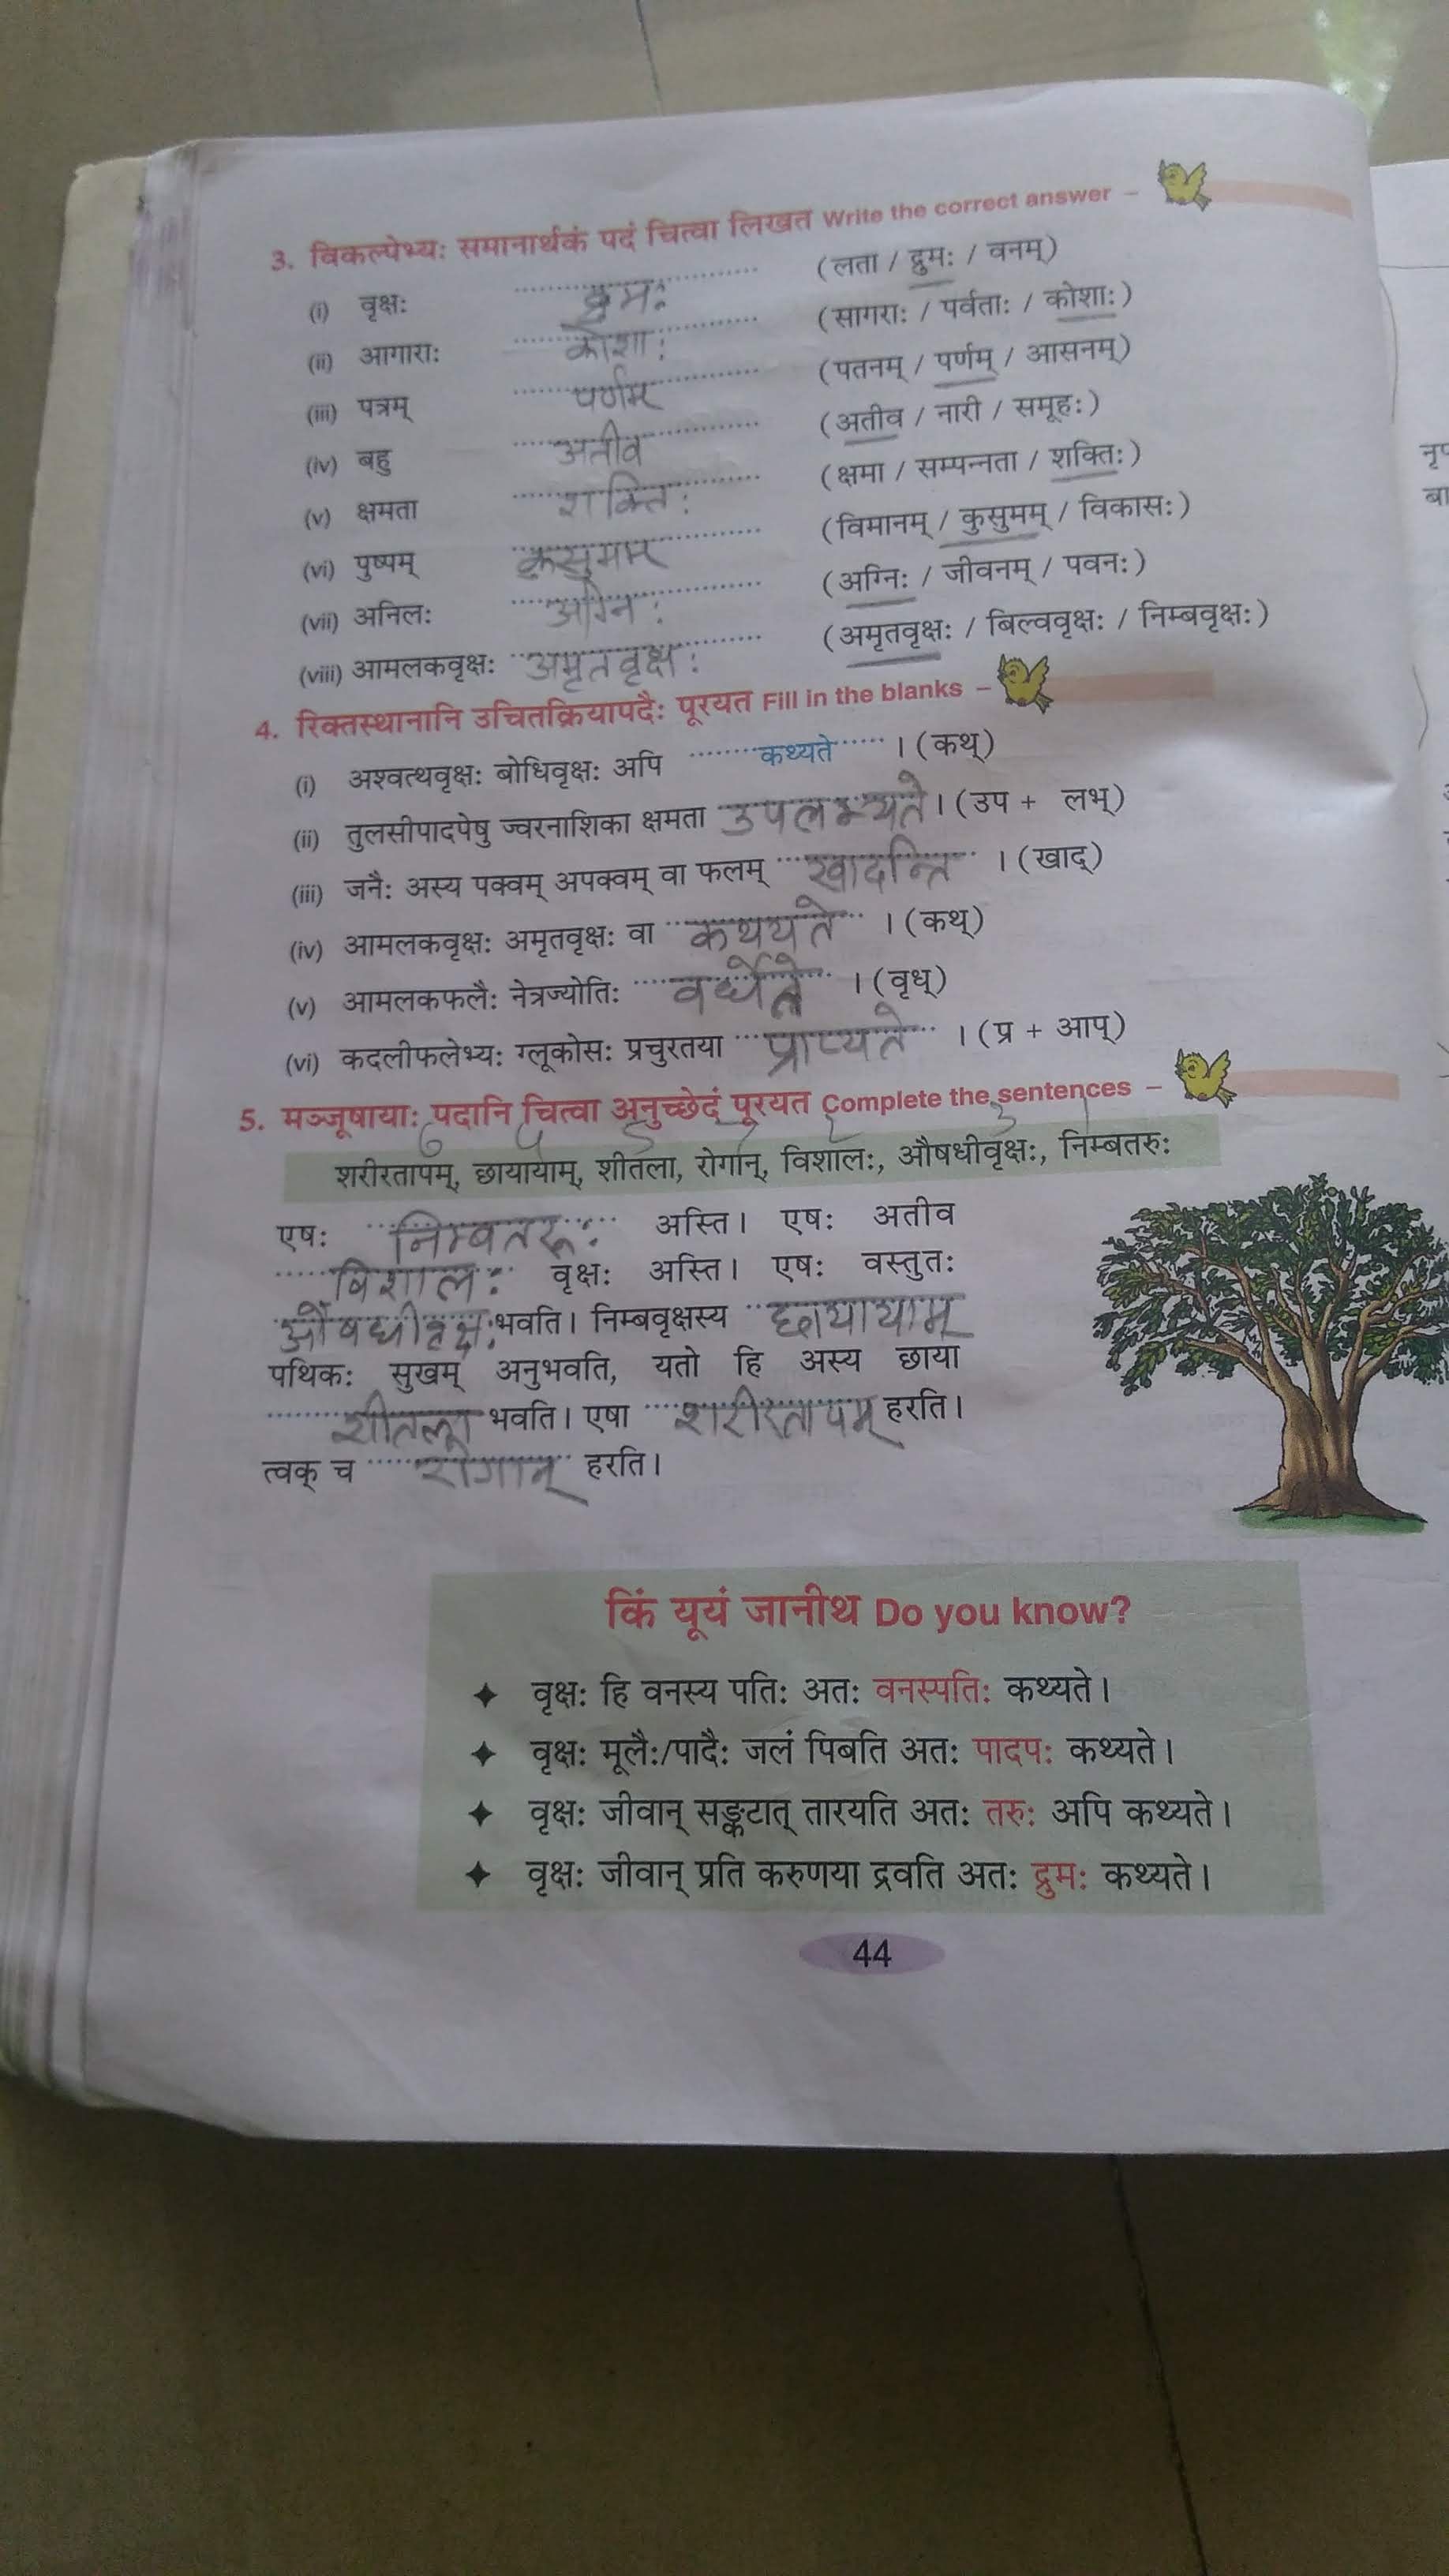 3. विकल्पेभ्यः समानार्थकं पदं चित्वा लिखत Write the correct answer –
(i) वृक्षः द्रुमः (लता / द्रुमः / वनम्)
(ii) आगाराः कोशाः (सागराः / पर्वताः / कोशाः)
(iii) पत्रम् पर्णम् (पतनम् / पर्णम् / आसनम्)
(iv) बहु अतीव (अतीव / नारी / समूहः)
(v) क्षमता शक्तिः (क्षमा / सम्पन्नता / शक्तिः)
(vi) पुष्पम् कुसुमम् (विमानम् / कुसुमम् / विकासः)
(vii) अनिलः अग्निः (अग्निः / जीवनम् / पवनः)
(viii) आमलकवृक्षः अमृतवृक्षः (अमृतवृक्षः / बिल्ववृक्षः / निम्बवृक्षः)
4. रिक्तस्थानानि उचितक्रियापदैः पूरयत Fill in the blanks –
(i) अश्वत्थवृक्षः बोधिवृक्षः अपि कथ्यते । (कथ्)
(ii) तुलसीपादपेषु ज्वरनाशिका क्षमता उपलभ्यते । (उप + लभ्)
(iii) जनैः अस्य पक्वम् अपक्वम् वा फलम् खादन्ति । (खाद्)
(iv) आमलकवृक्षः अमृतवृक्षः वा कथयते । (कथ्)
(v) आमलकफलैः नेत्रज्योतिः वर्धेते । (वृध्)
(vi) कदलीफलेभ्यः ग्लूकोसः प्रचुरतया प्राप्यते । (प्र + आप्)
5. मञ्जूषायाः पदानि चित्वा अनुच्छेदं पूरयत Complete the sentences –
शरीरतापम्, छायायाम्, शीतला, रोगान्, विशालः, औषधीवृक्षः, निम्बतरुः
एषः निम्बतरूः अस्ति। एषः अतीव
विशालः वृक्षः अस्ति। एषः वस्तुतः
औषधीवृक्षः भवति। निम्बवृक्षस्य छायायाम्
पथिकः सुखम् अनुभवति, यतो हि अस्य छाया
शीतला भवति। एषा शरीरतापम् हरति।
त्वक् च रोगान् हरति।
किं यूयं जानीथ Do you know?
✦ वृक्षः हि वनस्य पतिः अतः वनस्पतिः कथ्यते।
✦ वृक्षः मूलैः/पादैः जलं पिबति अतः पादपः कथ्यते।
✦ वृक्षः जीवान् सङ्कटात् तारयति अतः तरुः अपि कथ्यते।
✦ वृक्षः जीवान् प्रति करुणया द्रवति अतः द्रुमः कथ्यते।
44